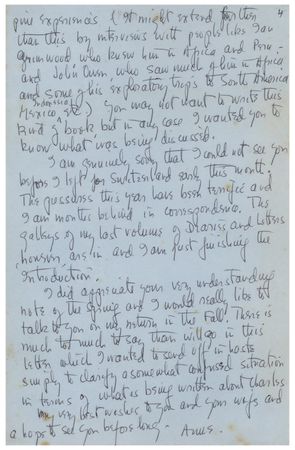 4
give experiences. It might extend further
than this by interviews with people like Ian
Grimwood who knew him in Africa and Peru -
and John Owen, who saw much of him in Africa
and some of his exploratory trips to South America
Indonesia
Mexico etc.) You may not want to write this
kind of book but in any case I wanted you to
know what was being discussed.
I am genuinely sorry that I could not see you
before I left for Switzerland early this month.
The pressures this year have been terrific and
I am months behind in correspondence. The
galleys of my last volume of Diaries and Letters
however, are in, and I am just finishing the
Introduction.
I did appreciate your very understanding
note of the Spring and I would really like to
talk to you on my return in the Fall. There is
much too much to say than will go in this
letter which I wanted to send off in haste
simply to clarify a somewhat confused situation
in terms of what is being written about Charles
My very best wishes to you and your wife and
a hope to see you before long - Anne.